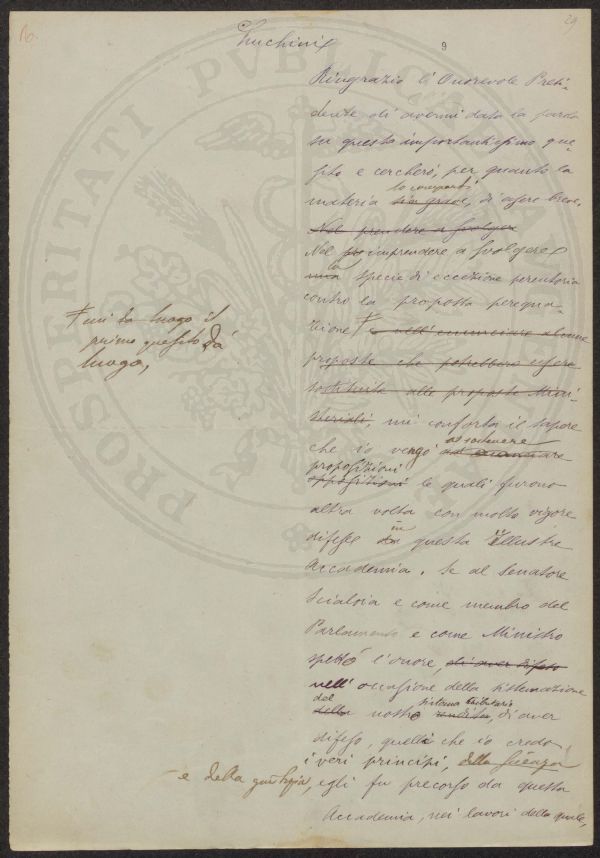 16.
29
9
Luchini
Ringrazio l'Onorevole Presi-
dente di avermi data la parola
su questo importantissimo que-
sito e cercherò, per quanto la
lo comporti
materia sia grave, di essere breve.
Nel prendere a svolgere
Nel imprendere a svolgere
una specie di eccezione perentoria
contro la proposta perequa-
zione e nell'enunciare alcune
proposte che potrebbero essere
sostituite alle proposte Mini-
steriali, mi conforta il sapere
che io vengo ad enunciare
a sostenere
proposizioni
opposizioni le quali furono
altra volta con molto vigore
difese in questa illustre
Accademia. Se al Senatore
Scialoia e come membro del
Parlamento e come Ministro
spettò l'onore, di aver difeso
nell'occasione della sistemazione
del sistema tributario
della nostro rendita, di aver
difeso, quelli che io credo
i veri principi, della scienza
e della giustizia, egli fu precorso da questa
Accademia, nei lavori della quale,
cui dà luogo il
primo quesito dà
luogo,
PROSPERITATI PVBLICAE